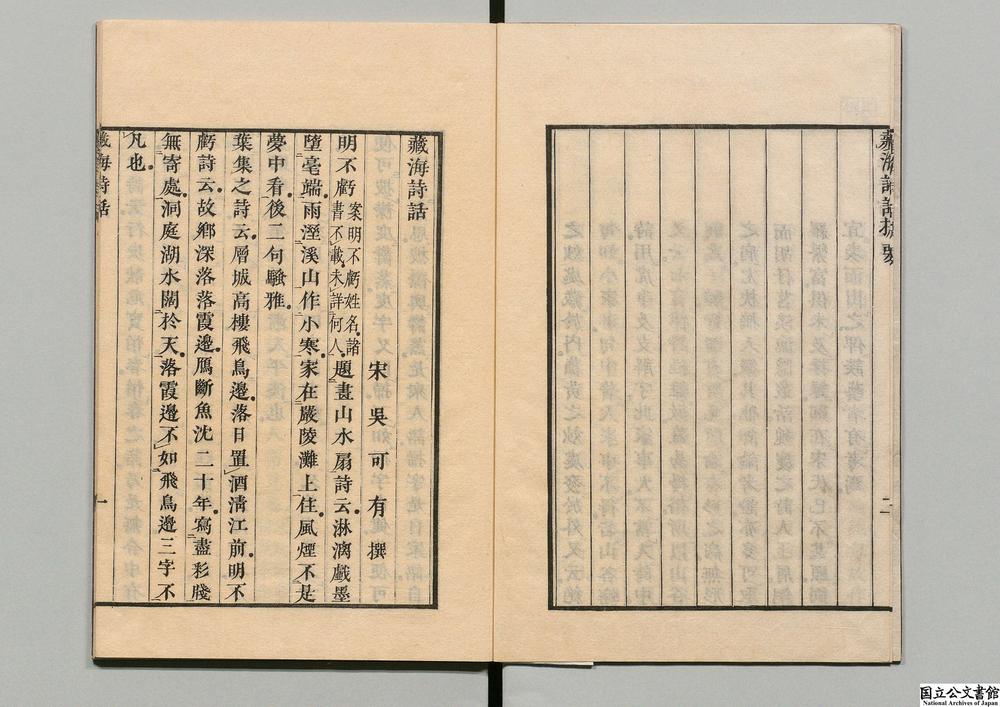 藏海詩話提要
二
藏海詩話
宋吳可有撰
明不虧案明不虧姓名諸書不載未詳何人題畫山水扇詩云淋漓戲墨
墮毫端雨溼溪山作小寒家在嚴陵灘上住風煙不是
夢中看後二句騷雅
葉集之詩云層城高樓飛鳥邊落日置酒清江前明不
虧詩云故鄉深落落霞邊鴈斷魚沈二十年寫盡彩牋
無寄處洞庭湖水闊於天落霞邊不如飛鳥邊三字不
凡也
藏海詩話
一
国立公文書館
National Archives of Japan